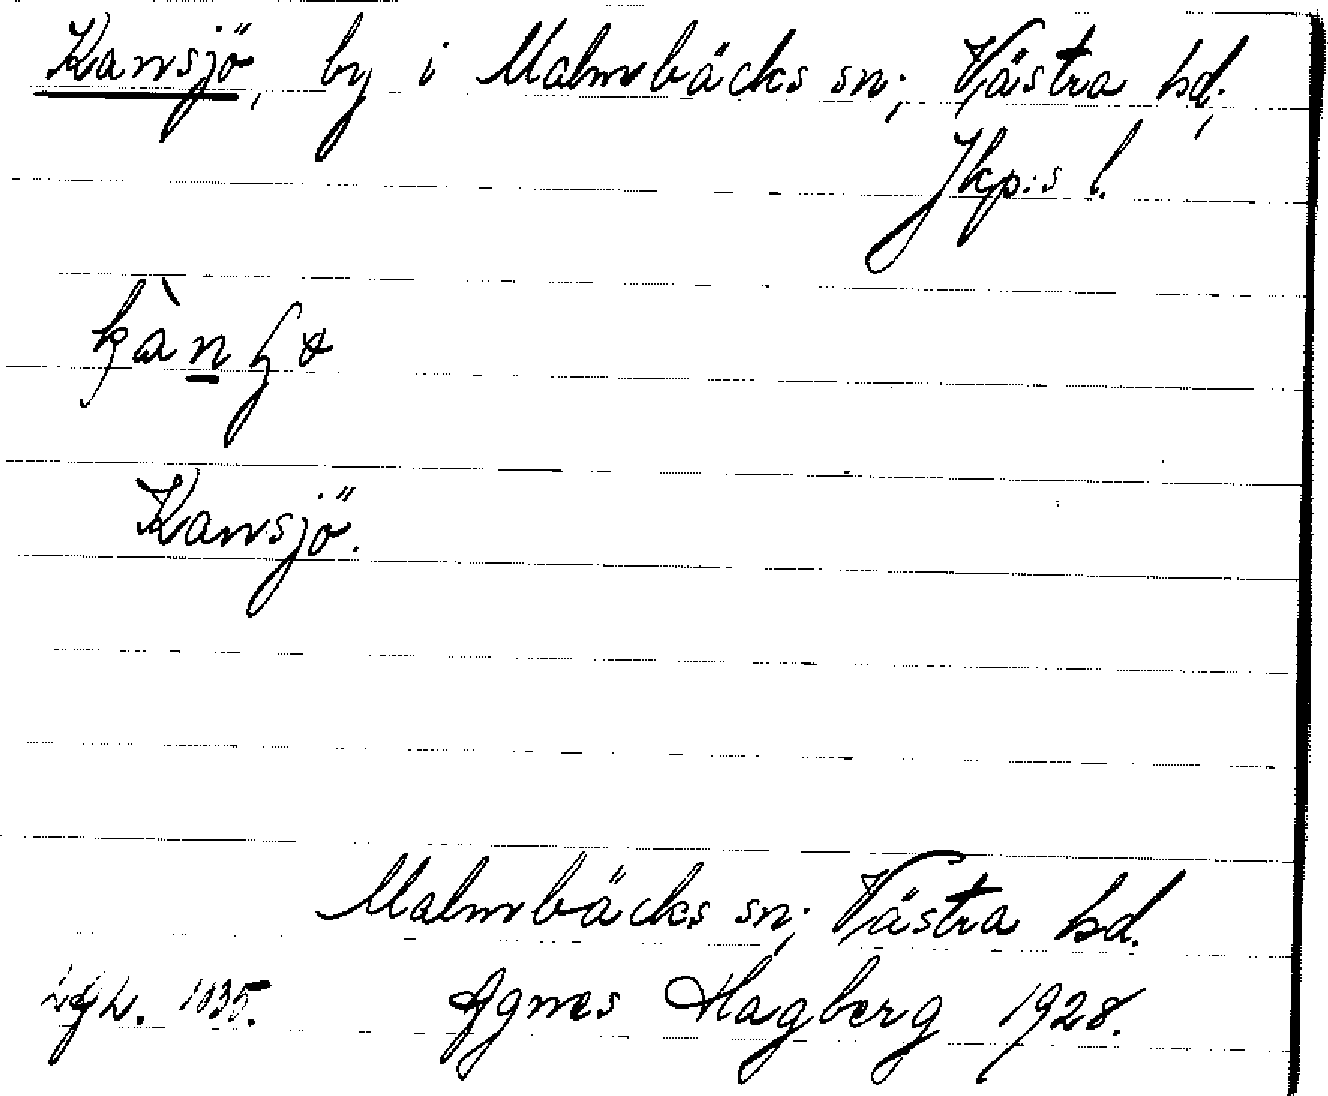 Kansjö, by i Malmbäcks sn; Västra hd;
Jkp:s l.
Kansjö.
Malmbäcks sn; Västra hd.
1935. Agnes Hagberg 1928.